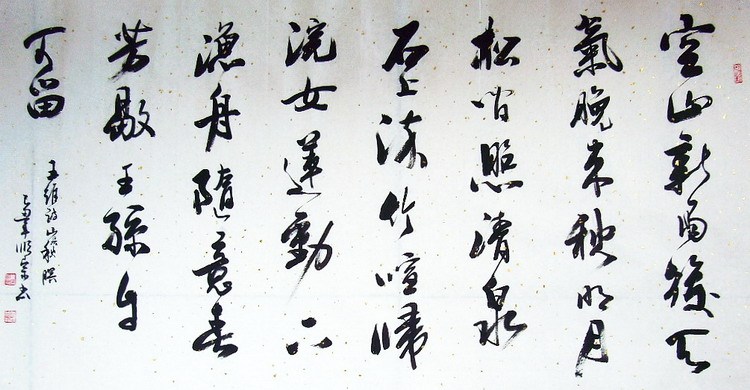 空山新雨後天
氣晚来秋明月
松間照清泉
石上流竹喧歸
浣女蓮動下
漁舟隨意春
芳歇王孫自
可留
王維詩山居秋暝
書